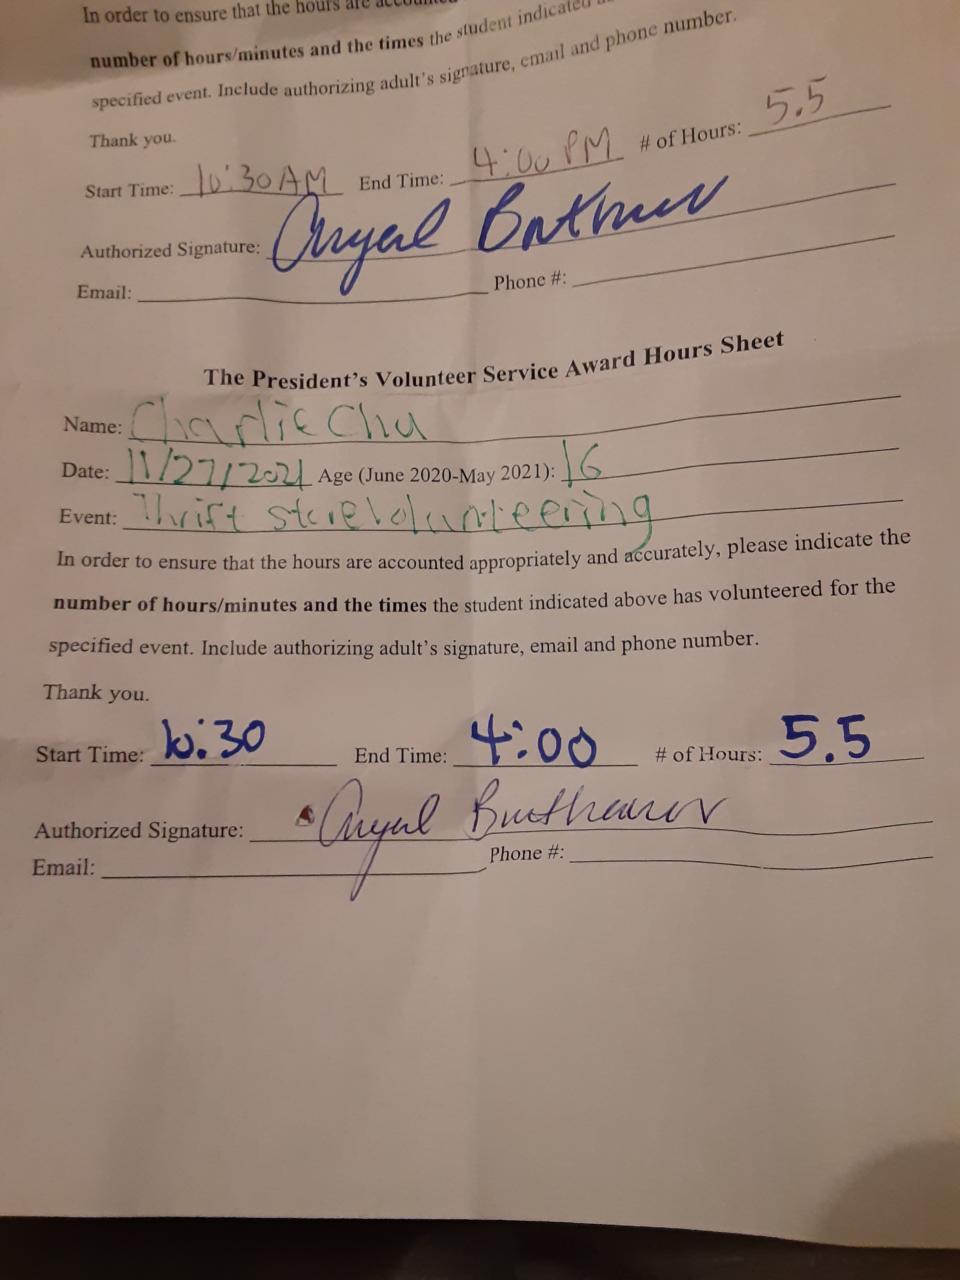 In order to ensure that the hours are accounted
number of hours/minutes and the times the student indicated
specified event. Include authorizing adult's signature, email and phone number.
Thank you.
Start Time: 10:30 AM End Time: 4:00 PM # of Hours: 5.5
Authorized Signature:
Email: Phone #:
The President's Volunteer Service Award Hours Sheet
Name: Charlie Chu
Date: 11/27/2021 Age (June 2020-May 2021): 16
Event: Thrift store Volunteering
In order to ensure that the hours are accounted appropriately and accurately, please indicate the
number of hours/minutes and the times the student indicated above has volunteered for the
specified event. Include authorizing adult's signature, email and phone number.
Thank you.
Start Time: 10:30 End Time: 4:00 # of Hours: 5.5
Authorized Signature:
Email: Phone #: